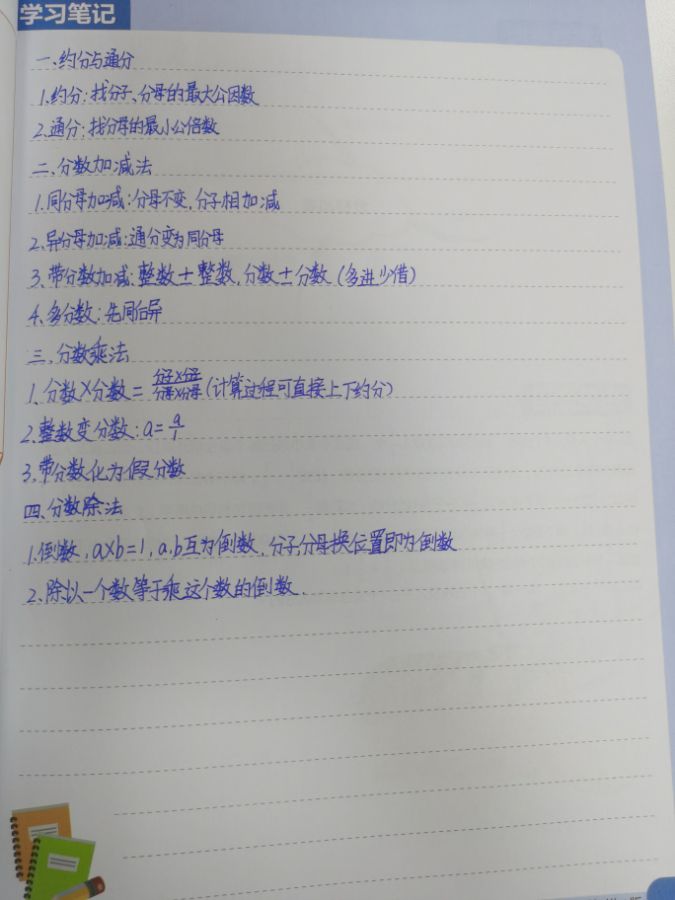 学习笔记
一、约分与通分
1.约分:找分子、分母的最大公因数
2.通分:找分母的最小公倍数
二、分数加减法
1.同分母加减:分母不变,分子相加减
2.异分母加减:通分变为同分母
3.带分数加减:整数±整数,分数±分数(多进少借)
4.多分数:先同后异
三、分数乘法
1.分数×分数=分子×分子/分母×分母(计算过程可直接上下约分)
2.整数变分数:a=a/1
3.带分数化为假分数
四、分数除法
1.倒数:a×b=1,a.b互为倒数,分子分母换位置即为倒数
2.除以一个数等于乘这个数的倒数.